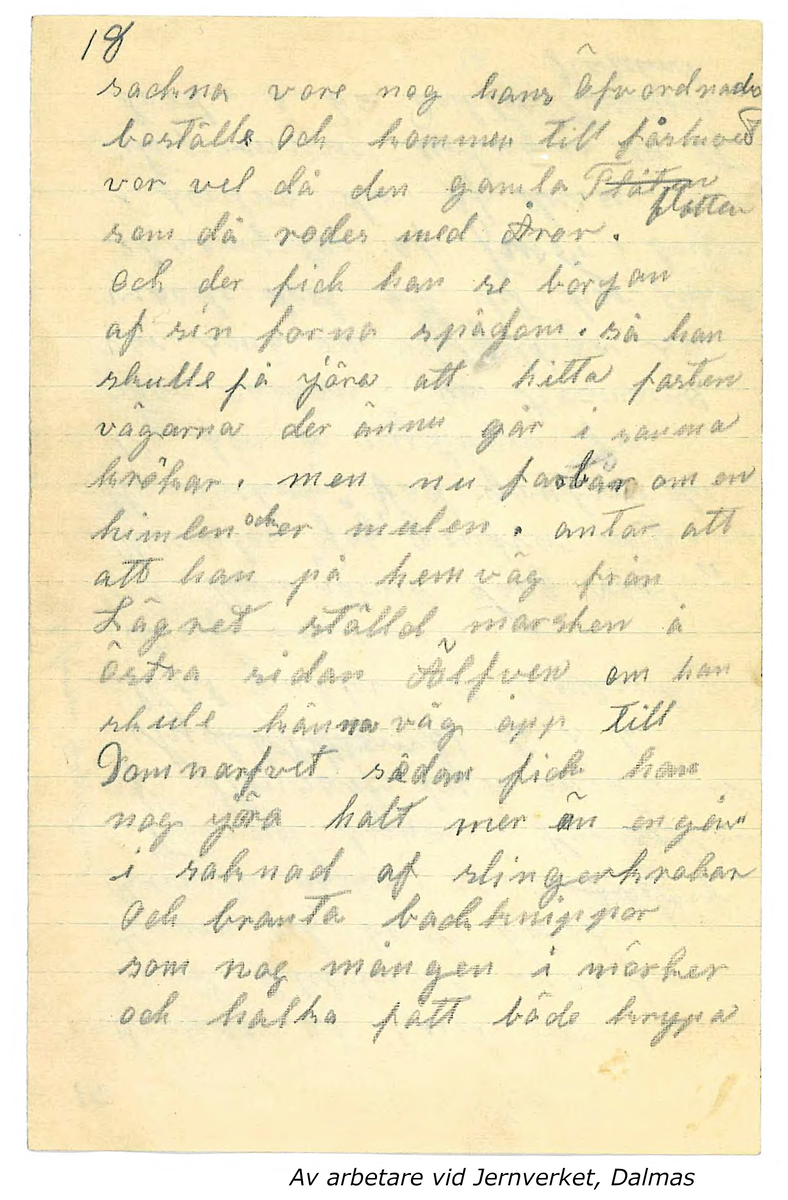 18
sackna vore nog hans Öfverordnade
boställe Och kommen till
vor vel då den gamla Flåten
Flotten
som då rodes med Åror.
Och der fick han se böryan
af sin forna spådom. så han
skulle få jöra att hitta fasten
vägarna der ännu går i samma
krökar. men nu om en
himlen och er mulen. antar att
att han på hemväg från
Lägret ställd marshen å
östra sidan Älfven om han
skule känna väg opp till
Domnarfvet sådan fick han
nog jöra halt mer än engån
i saknad af slingerkrokar
Och branta backknippor
som nog mången i mörker
och halka fått både krypa
Av arbetare vid Jernverket, Dalmas